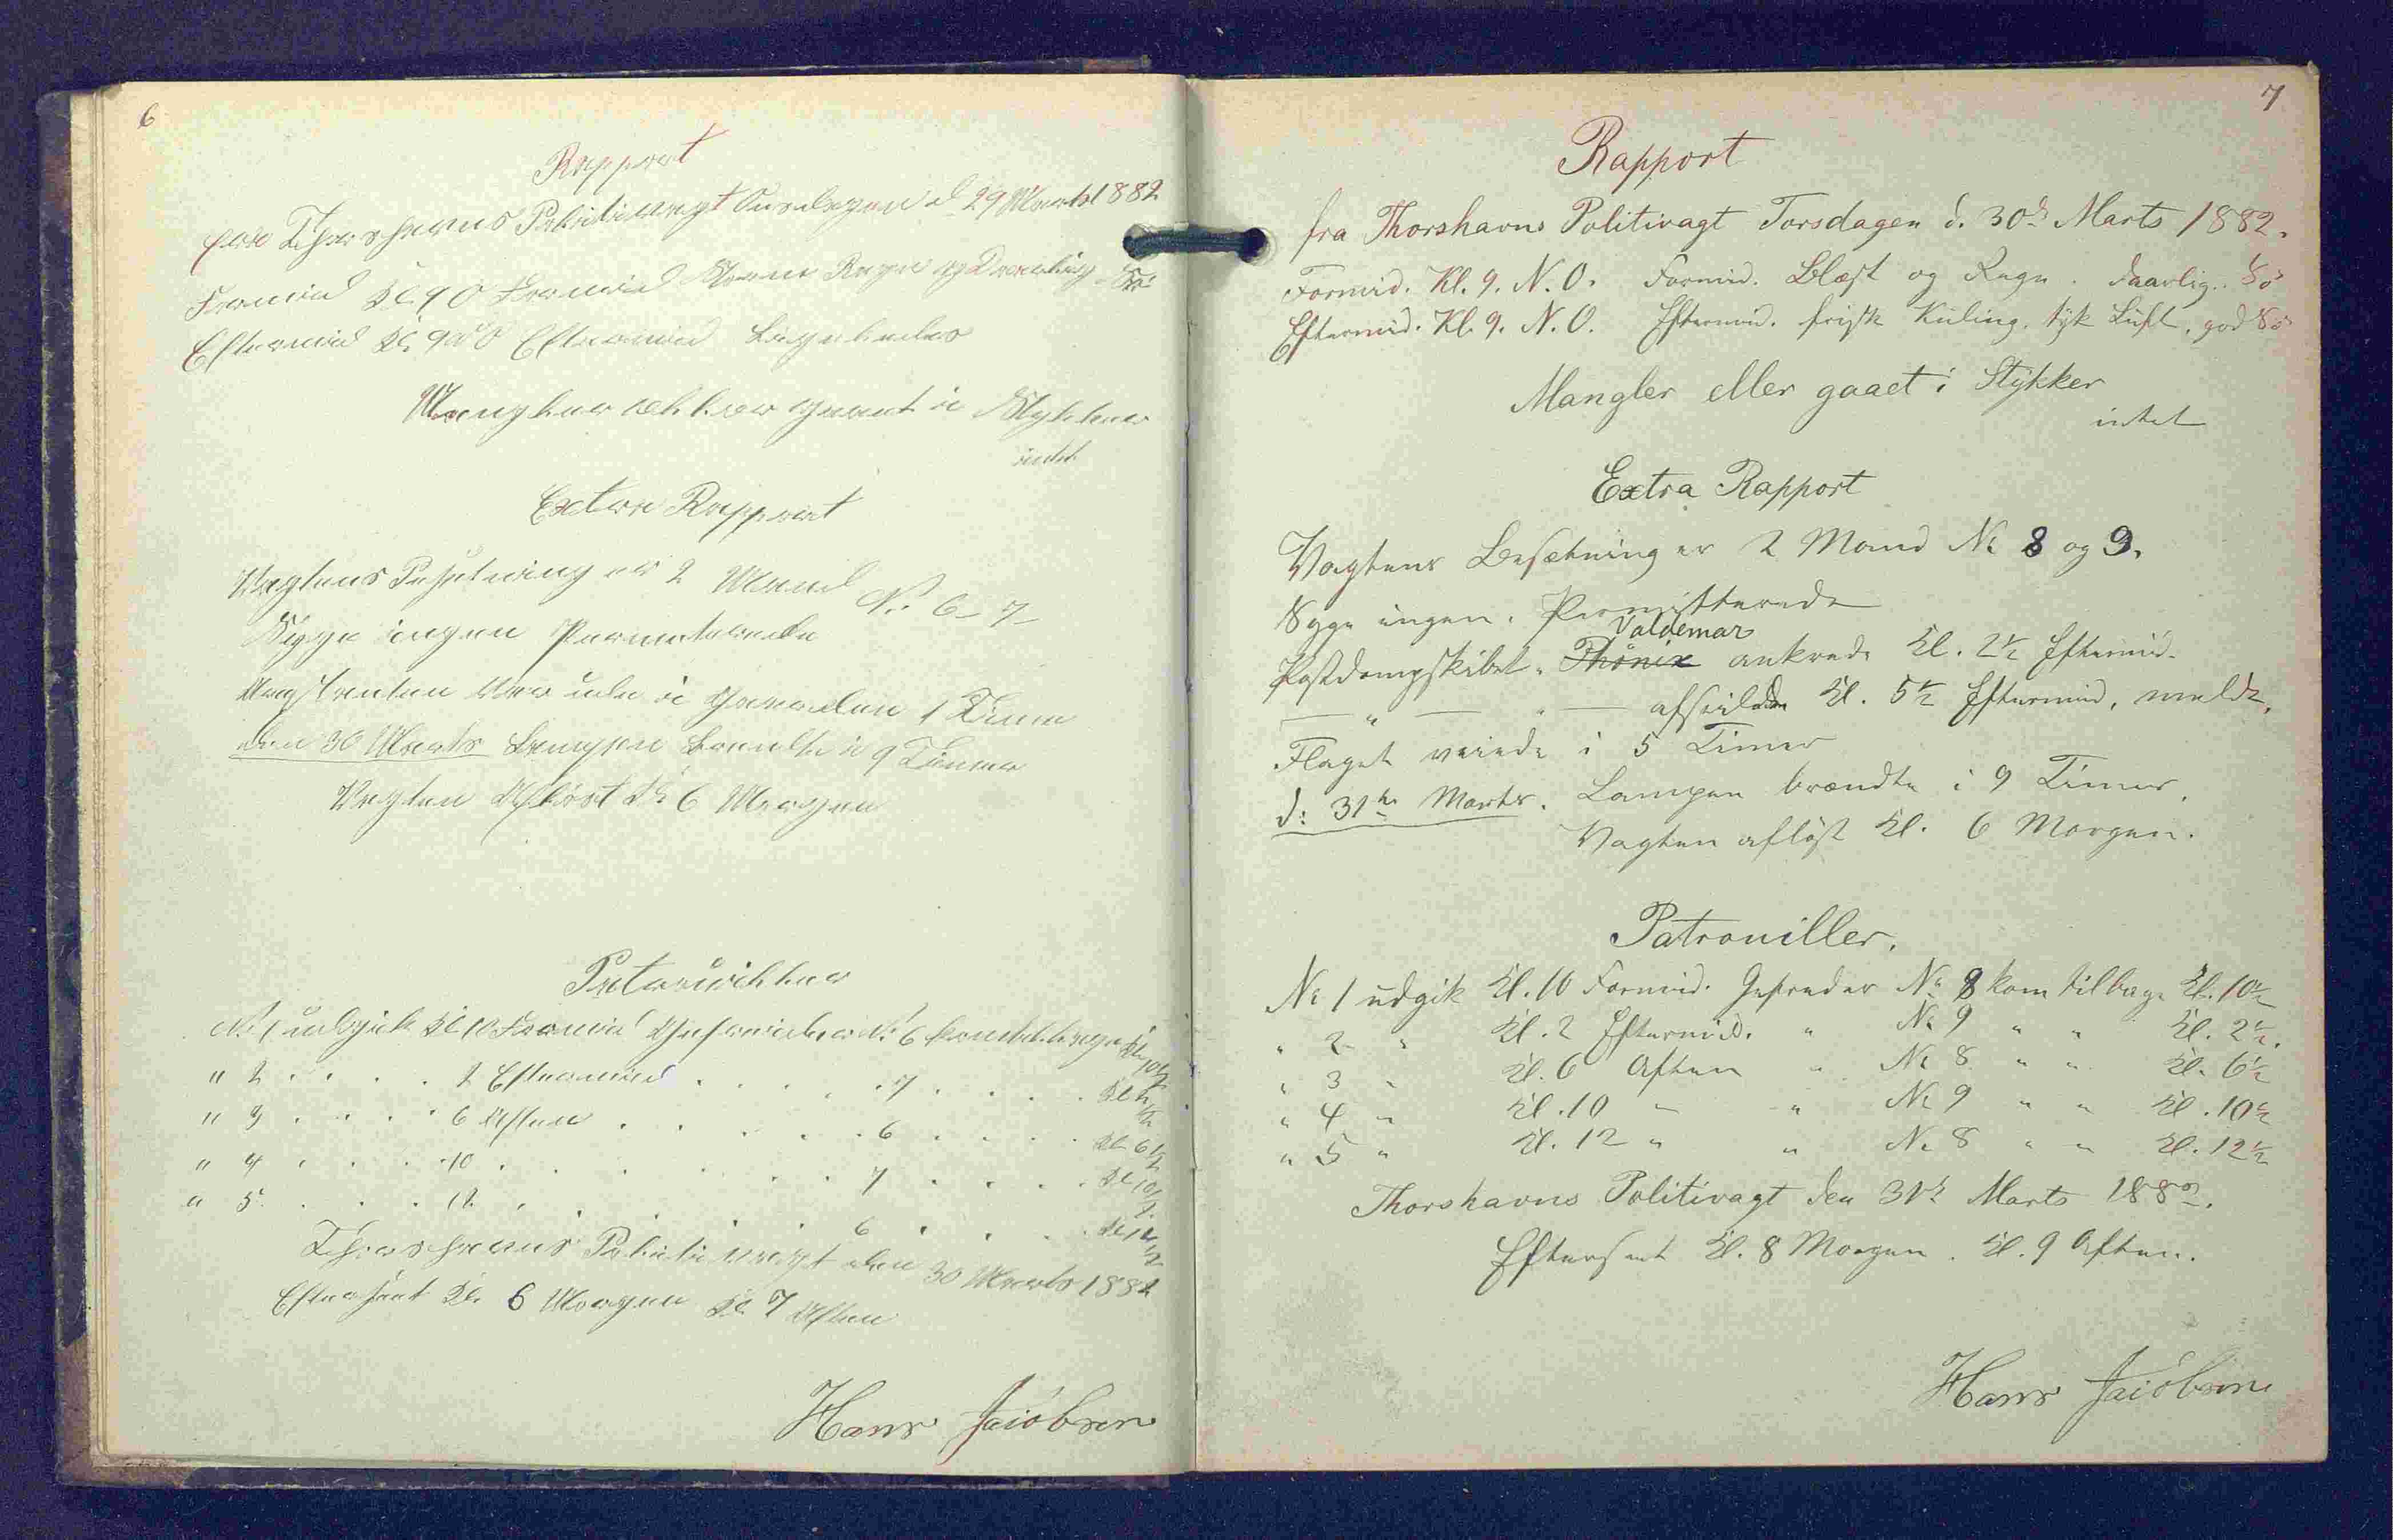 6
Rapport
fra Thorshavns Politivagt Onsdagen d 29 Marts 1882
Formid Kl 9 O Formid Storm Regn og Daarlig Sö
Eftermid Kl. 9 O Eftermid Ligeledes
Mangler eller gaaet i Stykker
intet
Extra Rapport
Vagtens Besetning er 2 Mand No 6 - 7 -
Syge ingen Permiterede
Arestanten var ude i Gaarden 1 Time
den 30 Marts Lampen brendte i 9 Timer
Vagten Aflöst Kl 6 Morgen
Patrouiller
No 1 udgik Kl 10 Formid Gefreider No 6 kom tilbage Kl 10½
" 2 . . . . 2 Eftermid . . . . 7 . . . . Kl 2½
" 3 . . . . 6 Aften . . . . . 6 . . . . Kl 6½
" 4 . . . . 10 . . . . . . 7 . . . . Kl 10½
" 5 . . . . 12 . . . . . 6 . . . . Kl 12½
Thorshavns Politivagt den 30 Marts 1882
Efterseet Kl. 6 Morgen Kl 7 Aften
Hans Jaióbsen
7
Rapport
fra Thorshavns Politivagt Torsdagen d. 30d Marts 1882.
Formid. Kl. 9. N. O. Formid. Blæst og Regn. daarlig. Sö
Eftermid. Kl. 9. N. O. Eftermid. frisk Kuling, tyk Luft, god Sö
Mangler eller gaaet i Stykker
intet
Extra Rapport
Vagtens Besætning er 2 Mand No 8 og 9.
Syge ingen. Permitterede
Valdemar
Postdampskibet " Phönix ankrede Kl. 2½ Eftermid.
— " — " — afseilede Kl. 5½ Eftermid, meldt,
Flaget veiede i 5 Timer
d: 31te Marts. Lampen brændte i 9 Timer.
Vagten aflöst Kl. 6 Morgen.
Patrouiller.
No 1 udgik Kl. 10 Formid. Gefreder No 8 kom tilbage Kl. 10½
" 2 " Kl. 2 Eftermid. " No 9 " " Kl. 2½.
" 3 " Kl. 6 Aften " No 8 " " Kl. 6½
" 4 " Kl. 10 " " No 9 " " Kl. 10½
" 5 " Kl. 12 " " No 8 " " Kl. 12½
Thorshavns Politivagt den 31te Marts 1882.
Efterseet Kl. 8 Morgen. Kl. 9 Aften.
Hans Jaióbsen